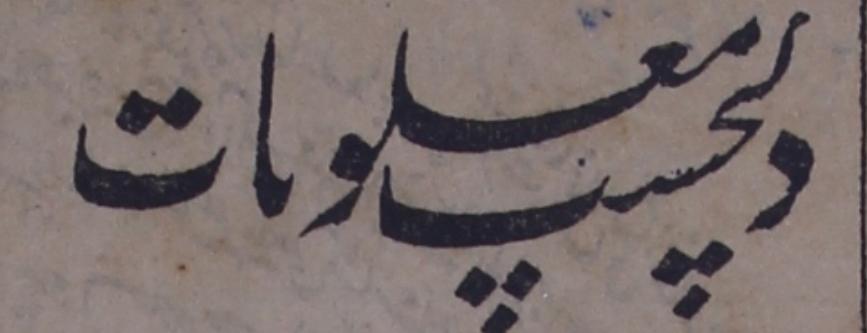 دلچسپ معلومات